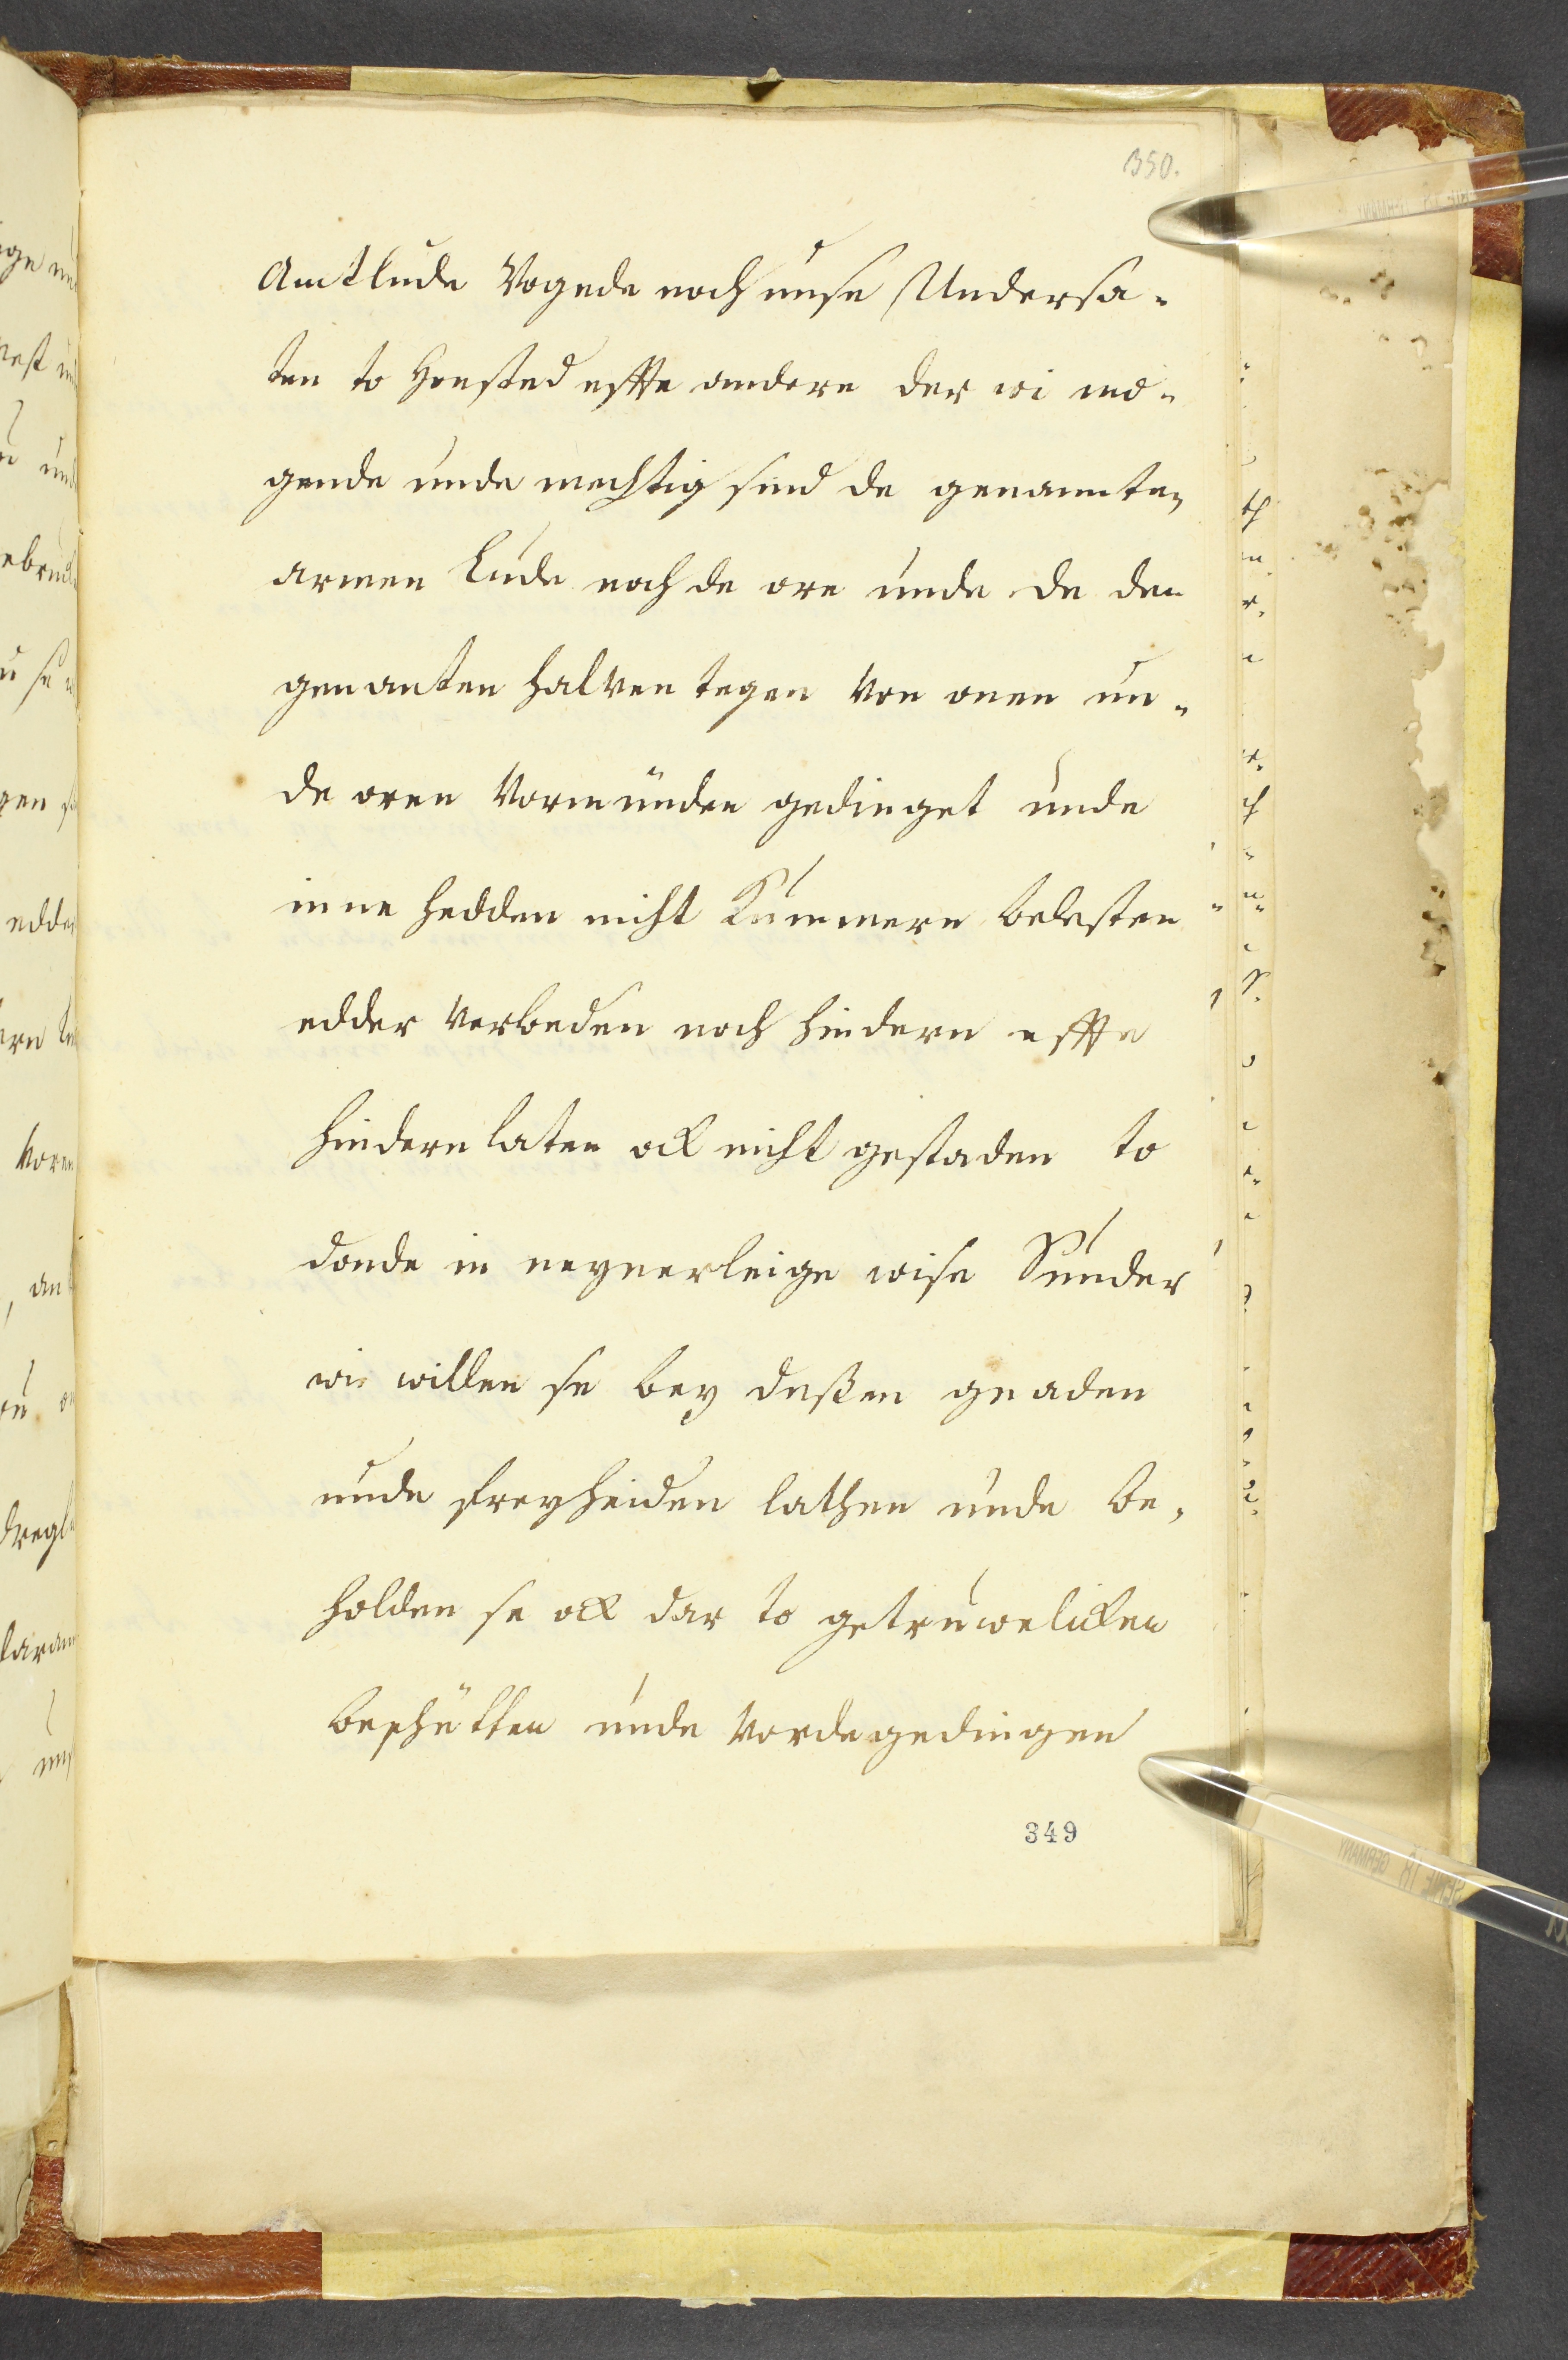 350.
Amtlude Vogede noch unse Undersa-
ten to Honsted effte andere der wi mo-
gende unde mechtig sind de genannten
armen Lude noch de ore unde de den
genanten halven tegen von onen un-
de oren Vormünden gedinget unde
inne hedden nicht Kummern belesten
edder verbeden noch hindern effte
hindern laten ock nicht gestaden to
donde in neynerleige wise Sunder
wi willen se bey dessen gnaden
unde freyheiden lathen unde be-
holden se ock dar to getruwelicken
beschütten unde vordegedingen
349